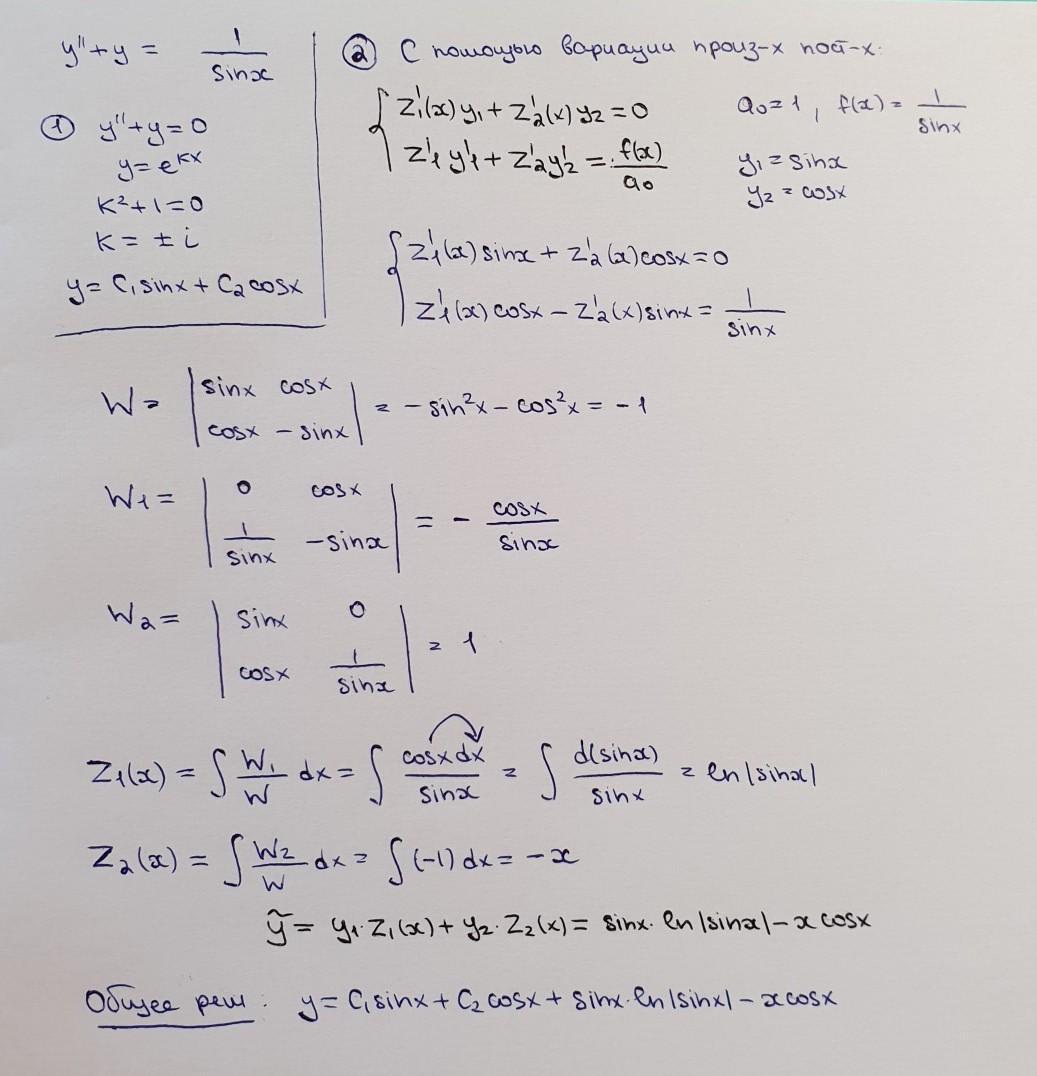 y'' + y = 1/sinx
① y'' + y = 0
y = e^{kx}
k² + 1 = 0
k = ± i
y = C₁sinx + C₂cosx
② С помощью вариации произ-х пост-х.
{ z₁'(x)y₁ + z₂'(x)y₂ = 0
z₁'y₁' + z₂'y₂' = f(x)/a₀
a₀ = 1, f(x) = 1/sinx
y₁ = sinx
y₂ = cosx
{ z₁'(x)sinx + z₂'(x)cosx = 0
z₁'(x)cosx − z₂'(x)sinx = 1/sinx
W = | sinx cosx |
| cosx −sinx | = −sin²x − cos²x = −1
W₁ = | 0 cosx |
| 1/sinx −sinx | = − cosx/sinx
W₂ = | sinx 0 |
| cosx 1/sinx | = 1
z₁(x) = ∫ W₁/W dx = ∫ cosxdx/sinx = ∫ d(sinx)/sinx = ln|sinx|
z₂(x) = ∫ W₂/W dx = ∫(−1)dx = −x
ỹ = y₁·z₁(x) + y₂·z₂(x) = sinx·ln|sinx| − xcosx
Общее реш: y = C₁sinx + C₂cosx + sinx·ln|sinx| − xcosx